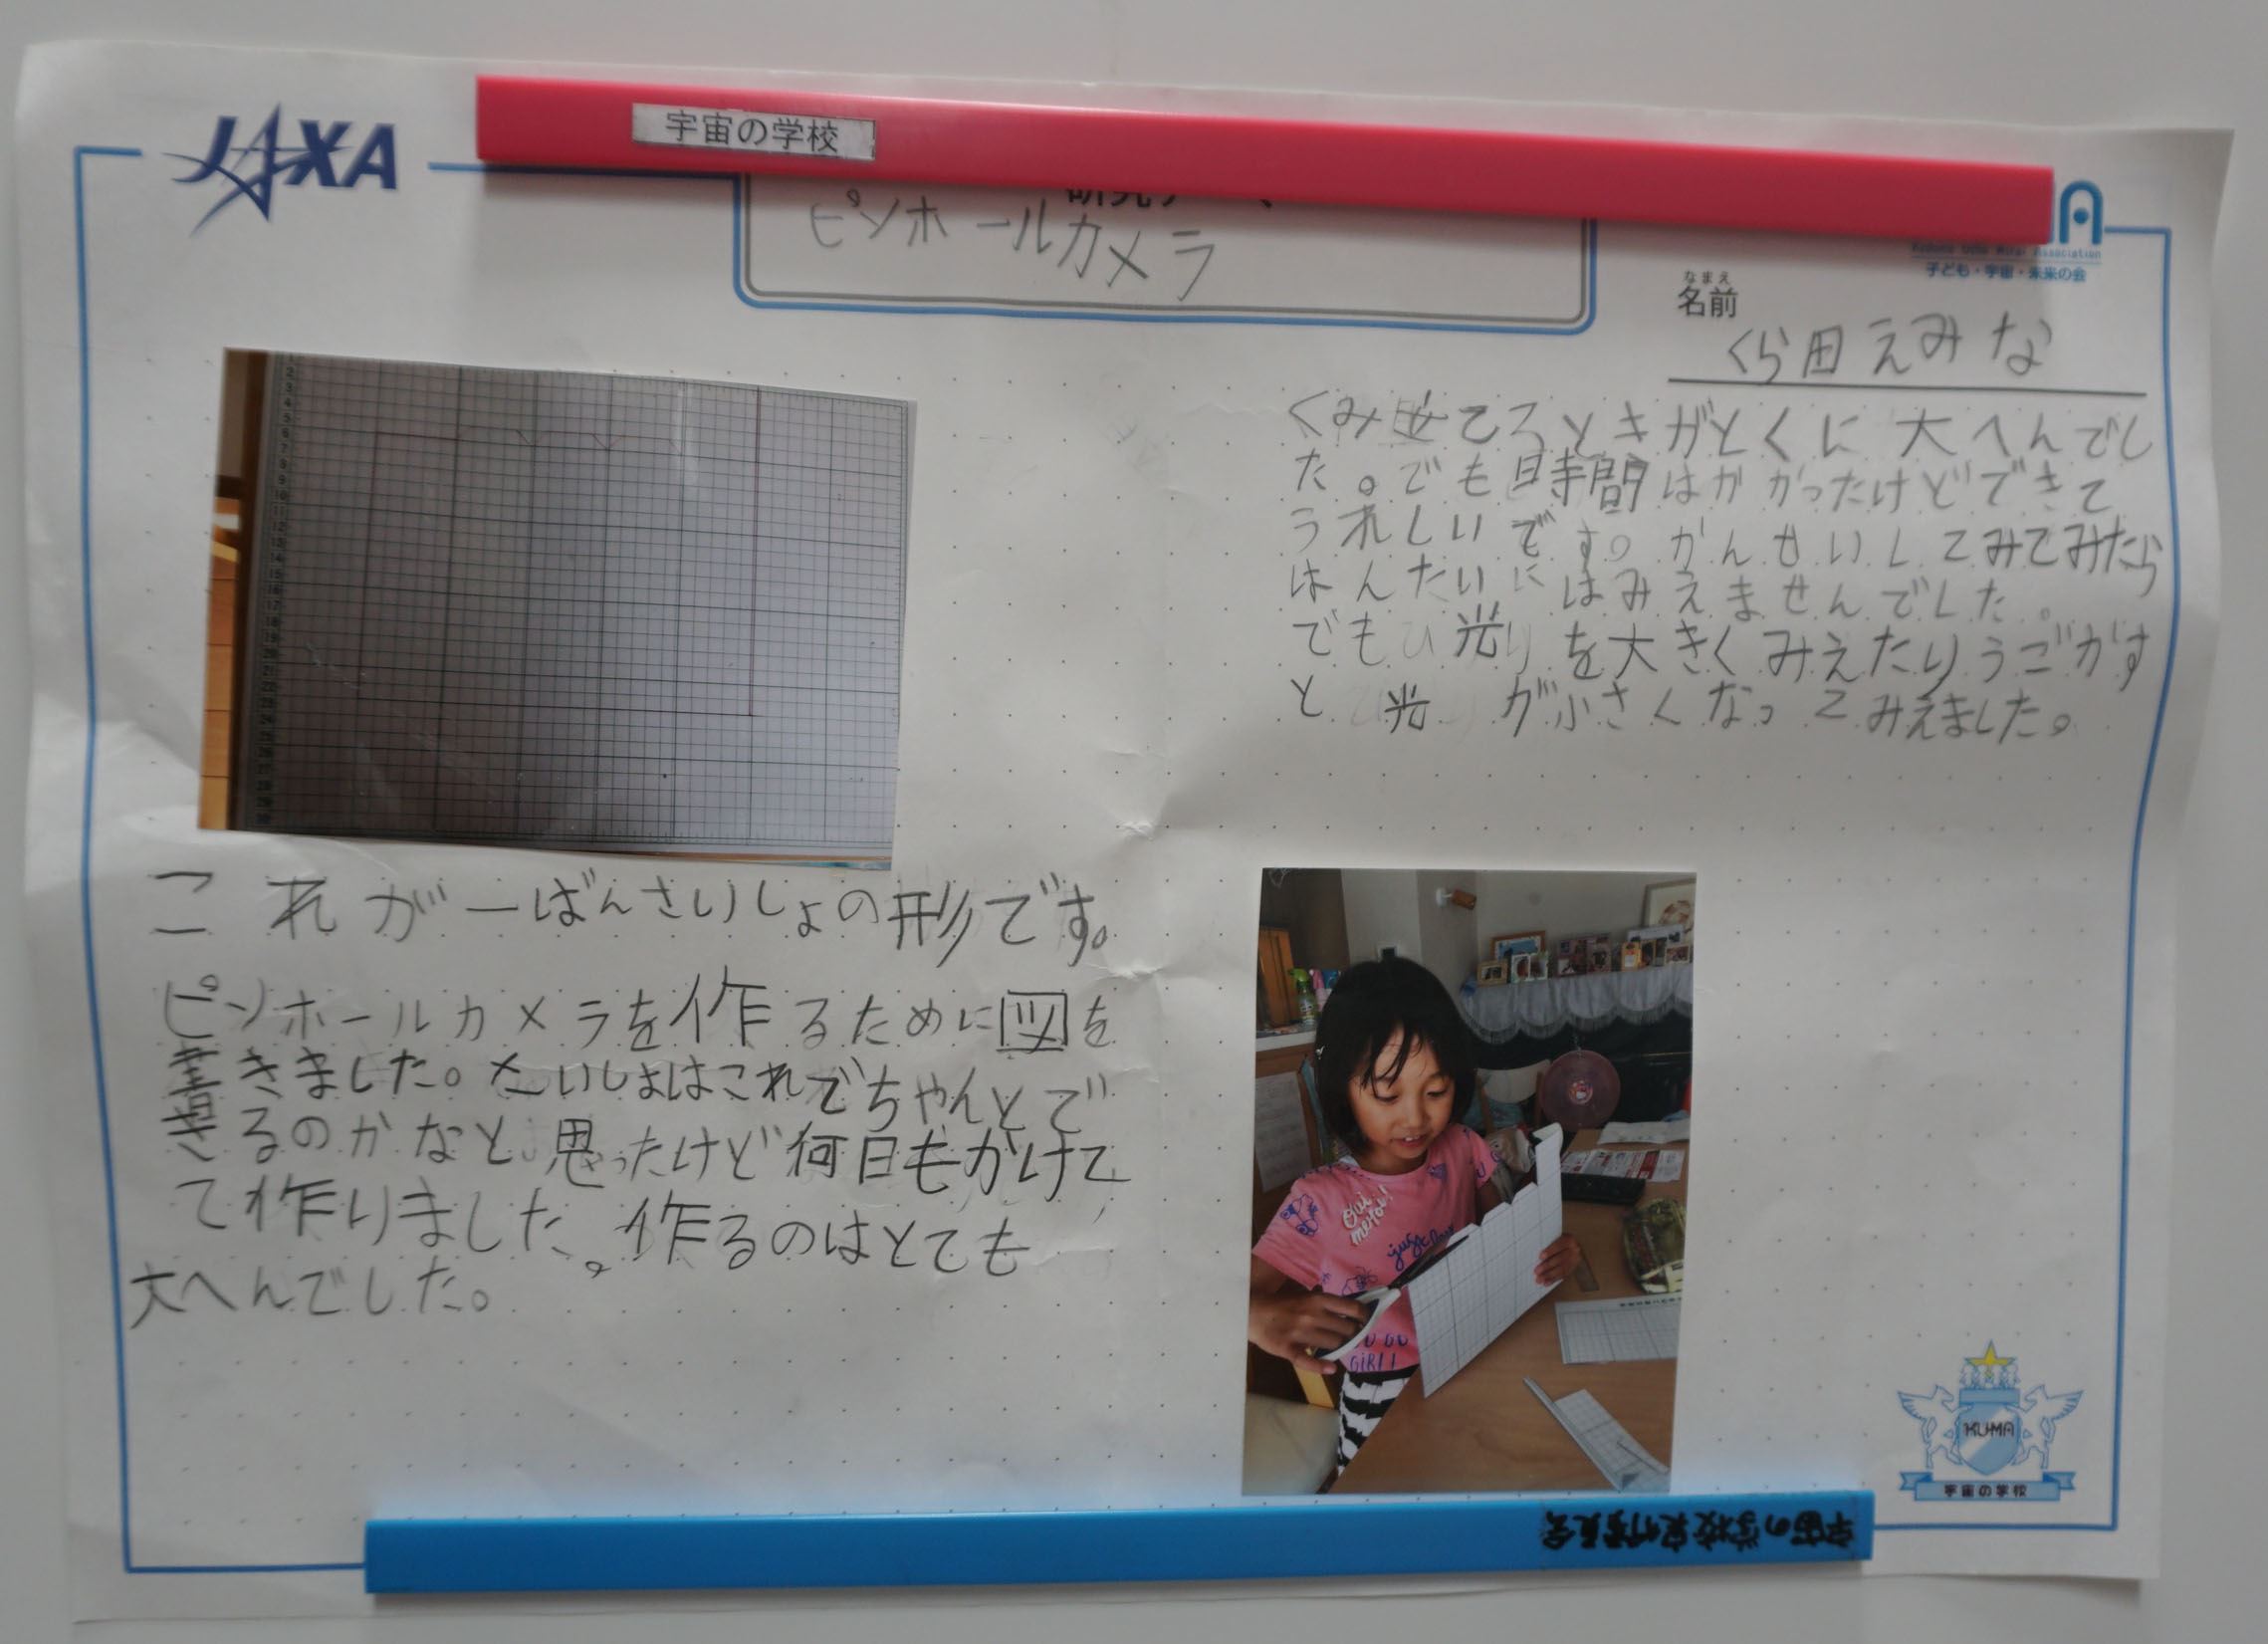 JAXA
宇宙の学校
ピンホールカメラ
子ども・宇宙・未来の会
なまえ
名前
くら田えみな
くみ立てるときがとくに大へんでし
た。でも時間はかかったけどできて
うれしいです。かんせいしてみてみたら
はんたいにはみえませんでした。
でも光りを大きくみえたりうごかす
と光が小さくなってみえました。
これが一ばんさいしょの形です。
ピンホールカメラを作るために図を
書きました。さいしょはこれでちゃんとで
きるのかなと思ったけど何日もかけて
て作りました。作るのはとても
大へんでした。
Oui
merci!
GIRL!
KUMA
宇宙の学校
宇宙の学校実行委員会